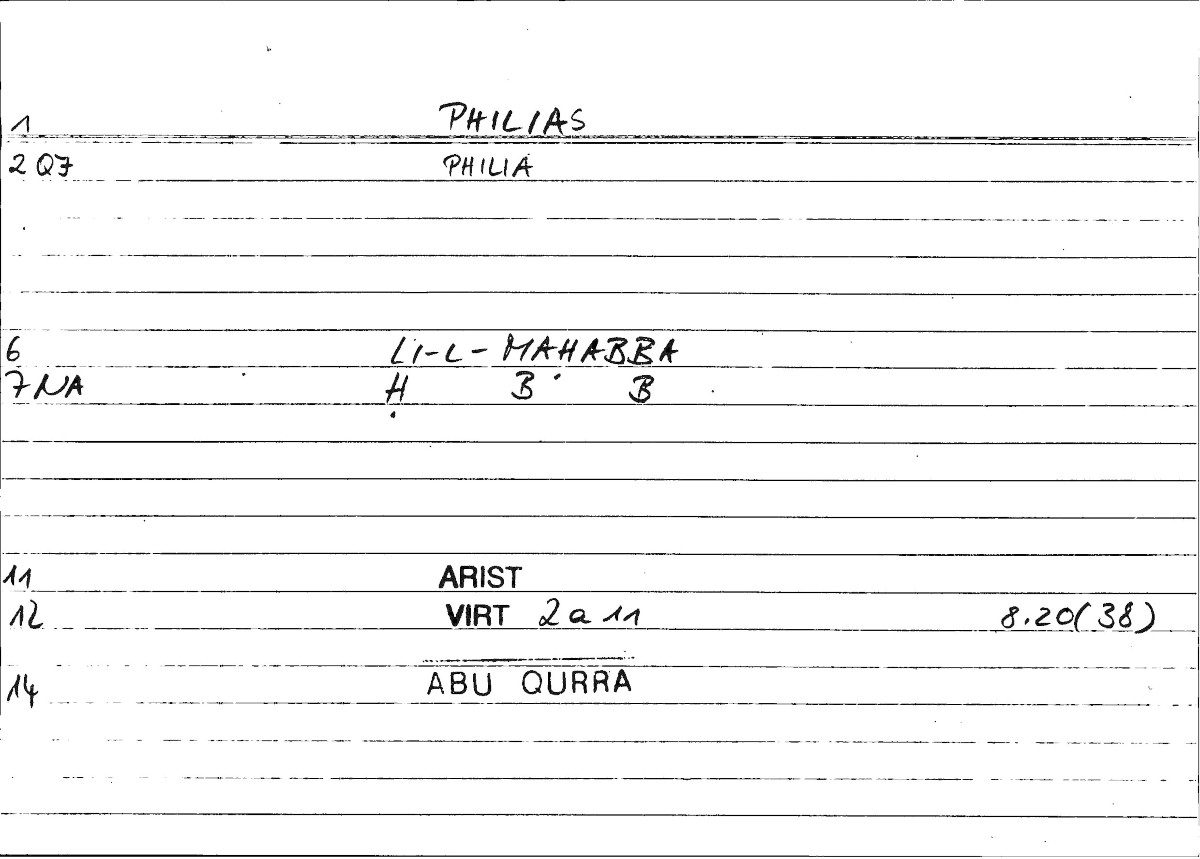 1 PHILIAS
2 Q7 PHILIA
6 LI-L-MAHABBA
7 NA Ḥ B B
11 ARIST
12 VIRT 2a11 8.20(38)
14 ABU QURRA